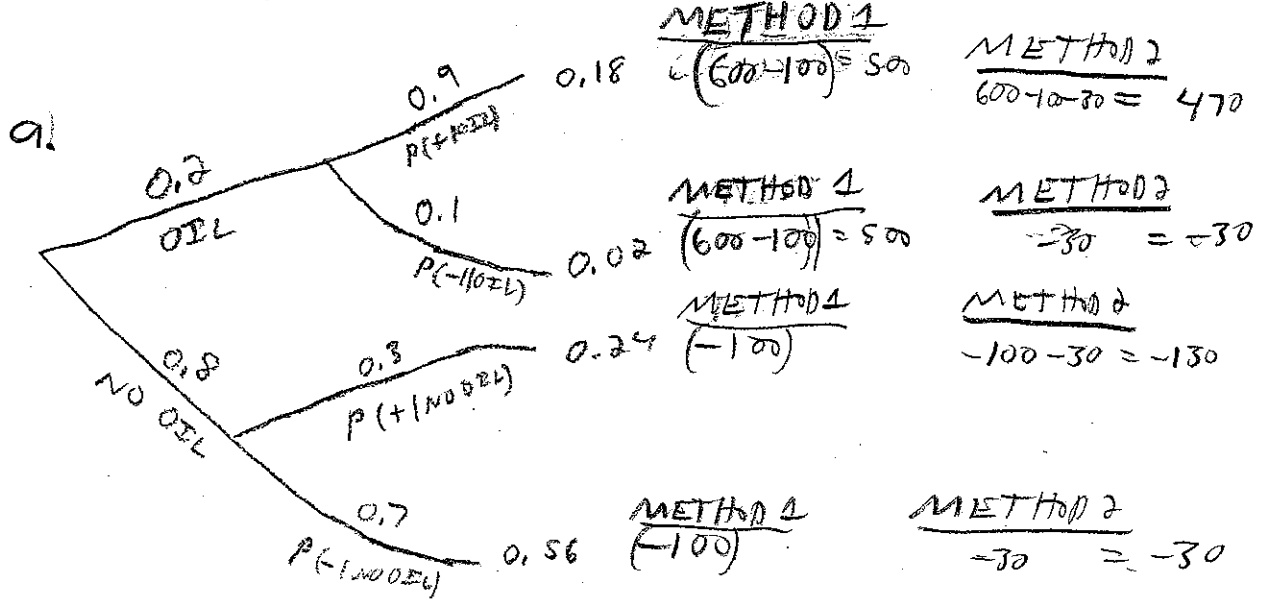 a.
METHOD 1
(600-100) = 500
METHOD 2
600-10-30 = 470
0.9
P(+|OIL)
0.18
0.2
OIL
0.1
P(-|OIL)
0.02
METHOD 1
(600-100) = 500
METHOD 2
-30 = -30
0.8
NO OIL
0.3
P(+|NO OIL)
0.24
METHOD 1
(-100)
METHOD 2
-100-30 = -130
0.7
P(-|NO OIL)
0.56
METHOD 1
(-100)
METHOD 2
-30 = -30